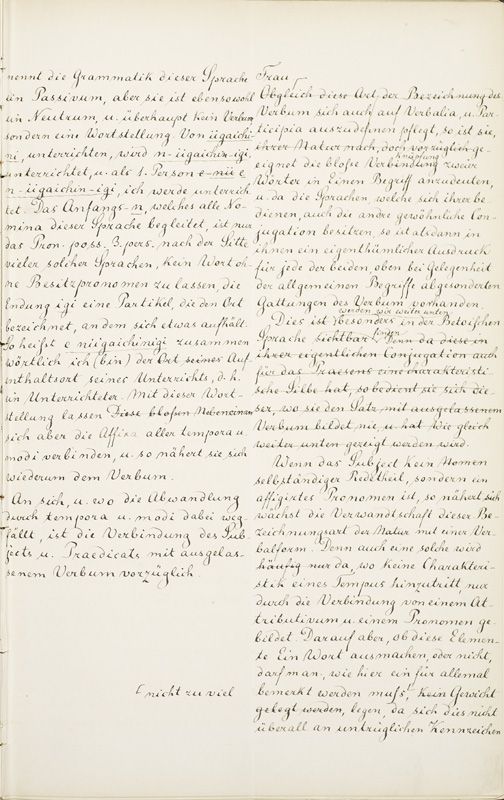 nennt die Grammatik dieser Sprache
ein Passivum, aber sie ist ebensowohl
ein Neutrum, u. überhaupt kein Verbum
sondern eine Wortstellung. Von üigaichi-
ni, unterrichten, wird n-üigaichir-igi,
unterrichtet, u. als 1. Person e-nii e
n-üigaichin-igi, ich werde unterrich
tet. Das Anfangs-n, welches alle No-
mina dieser Sprache begleitet, ist nur
das Pron. poss. 3. pers. nach der Sitte
vieler solcher Sprachen, kein Wort oh-
ne Besitzpronomen zu lassen, die
Endung igi eine Partikel, die den Ort
bezeichnet, an dem sich etwas aufhält.
So heißt e niigaichinigi zusammen
wörtlich ich (bin) der Ort seines Auf
enthaltsort seines Unterrichts, d. h.
ein Unterrichteter. Mit dieser Wort-
stellung lassen Diese bloßen
sich aber die Affixa aller tempora u.
modi verbinden, u. so nähert sie sich
wiederum dem Verbum.
An sich, u. wo die Abwandlung
durch tempora u. modi dabei weg-
fällt, ist die Verbindung des Sub-
jects u. Praedicats mit ausgelas-
senem Verbum vorzüglich
nicht zu viel
Frau
Obgleich diese Art der Bezeichnung des
Verbum sich auch auf Verbalia, u. Par-
ticipia auszudehnen pflegt, so ist sie,
ihrer Natur nach, doch vorzüglich ge-
eignet die bloße Verbindung knüpfung zweier
Wörter in Einen Begriff anzudeuten,
u. da die Sprachen, welche sich ihrer be-
dienen, auch die andre gewöhnliche Con-
jugation besitzen, so ist alsdann in
ihnen ein eigenthümlicher Ausdruck
für jede der beiden, oben bei Gelegenheit
der allgemeinen Begriffe abgesonderten
Gattungen des Verbum vorhanden.
werden wir weiter unten
Dies ist besonders in der Betoischen
Sprache sichtbar. Denn da diese in
ihrer eigentlichen Conjugation auch
für das Praesens eine charakteristi-
sche Silbe hat, so bedient sie sich die-
ser, wo sie den Satz mit ausgelassenem
Verbum bildet nie, u. hat Wie gleich
weiter unten gezeigt werden wird.
Wenn das Subject kein Nomen
selbständiger Redetheil, sondern ein
affigirtes Pronomen ist, so nähert sich
wächst die Verwandtschaft dieser Be-
zeichnungsart der Natur mit einer Ver-
balform. Denn auch eine solche wird
häufig nur da, wo keine Charakteri-
stik eines Tempus hinzutritt, nur
durch die Verbindung von einem At-
tributivum u. einem Pronomen ge-
bildet. Darauf aber, ob diese Elemen-
te Ein Wort ausmachen, oder nicht,
darf man, wie hier ein für allemal
bemerkt werden muß, kein Gewicht
gelegt werden, legen, da sich dies nicht
überall an untrüglichen Kennzeichen